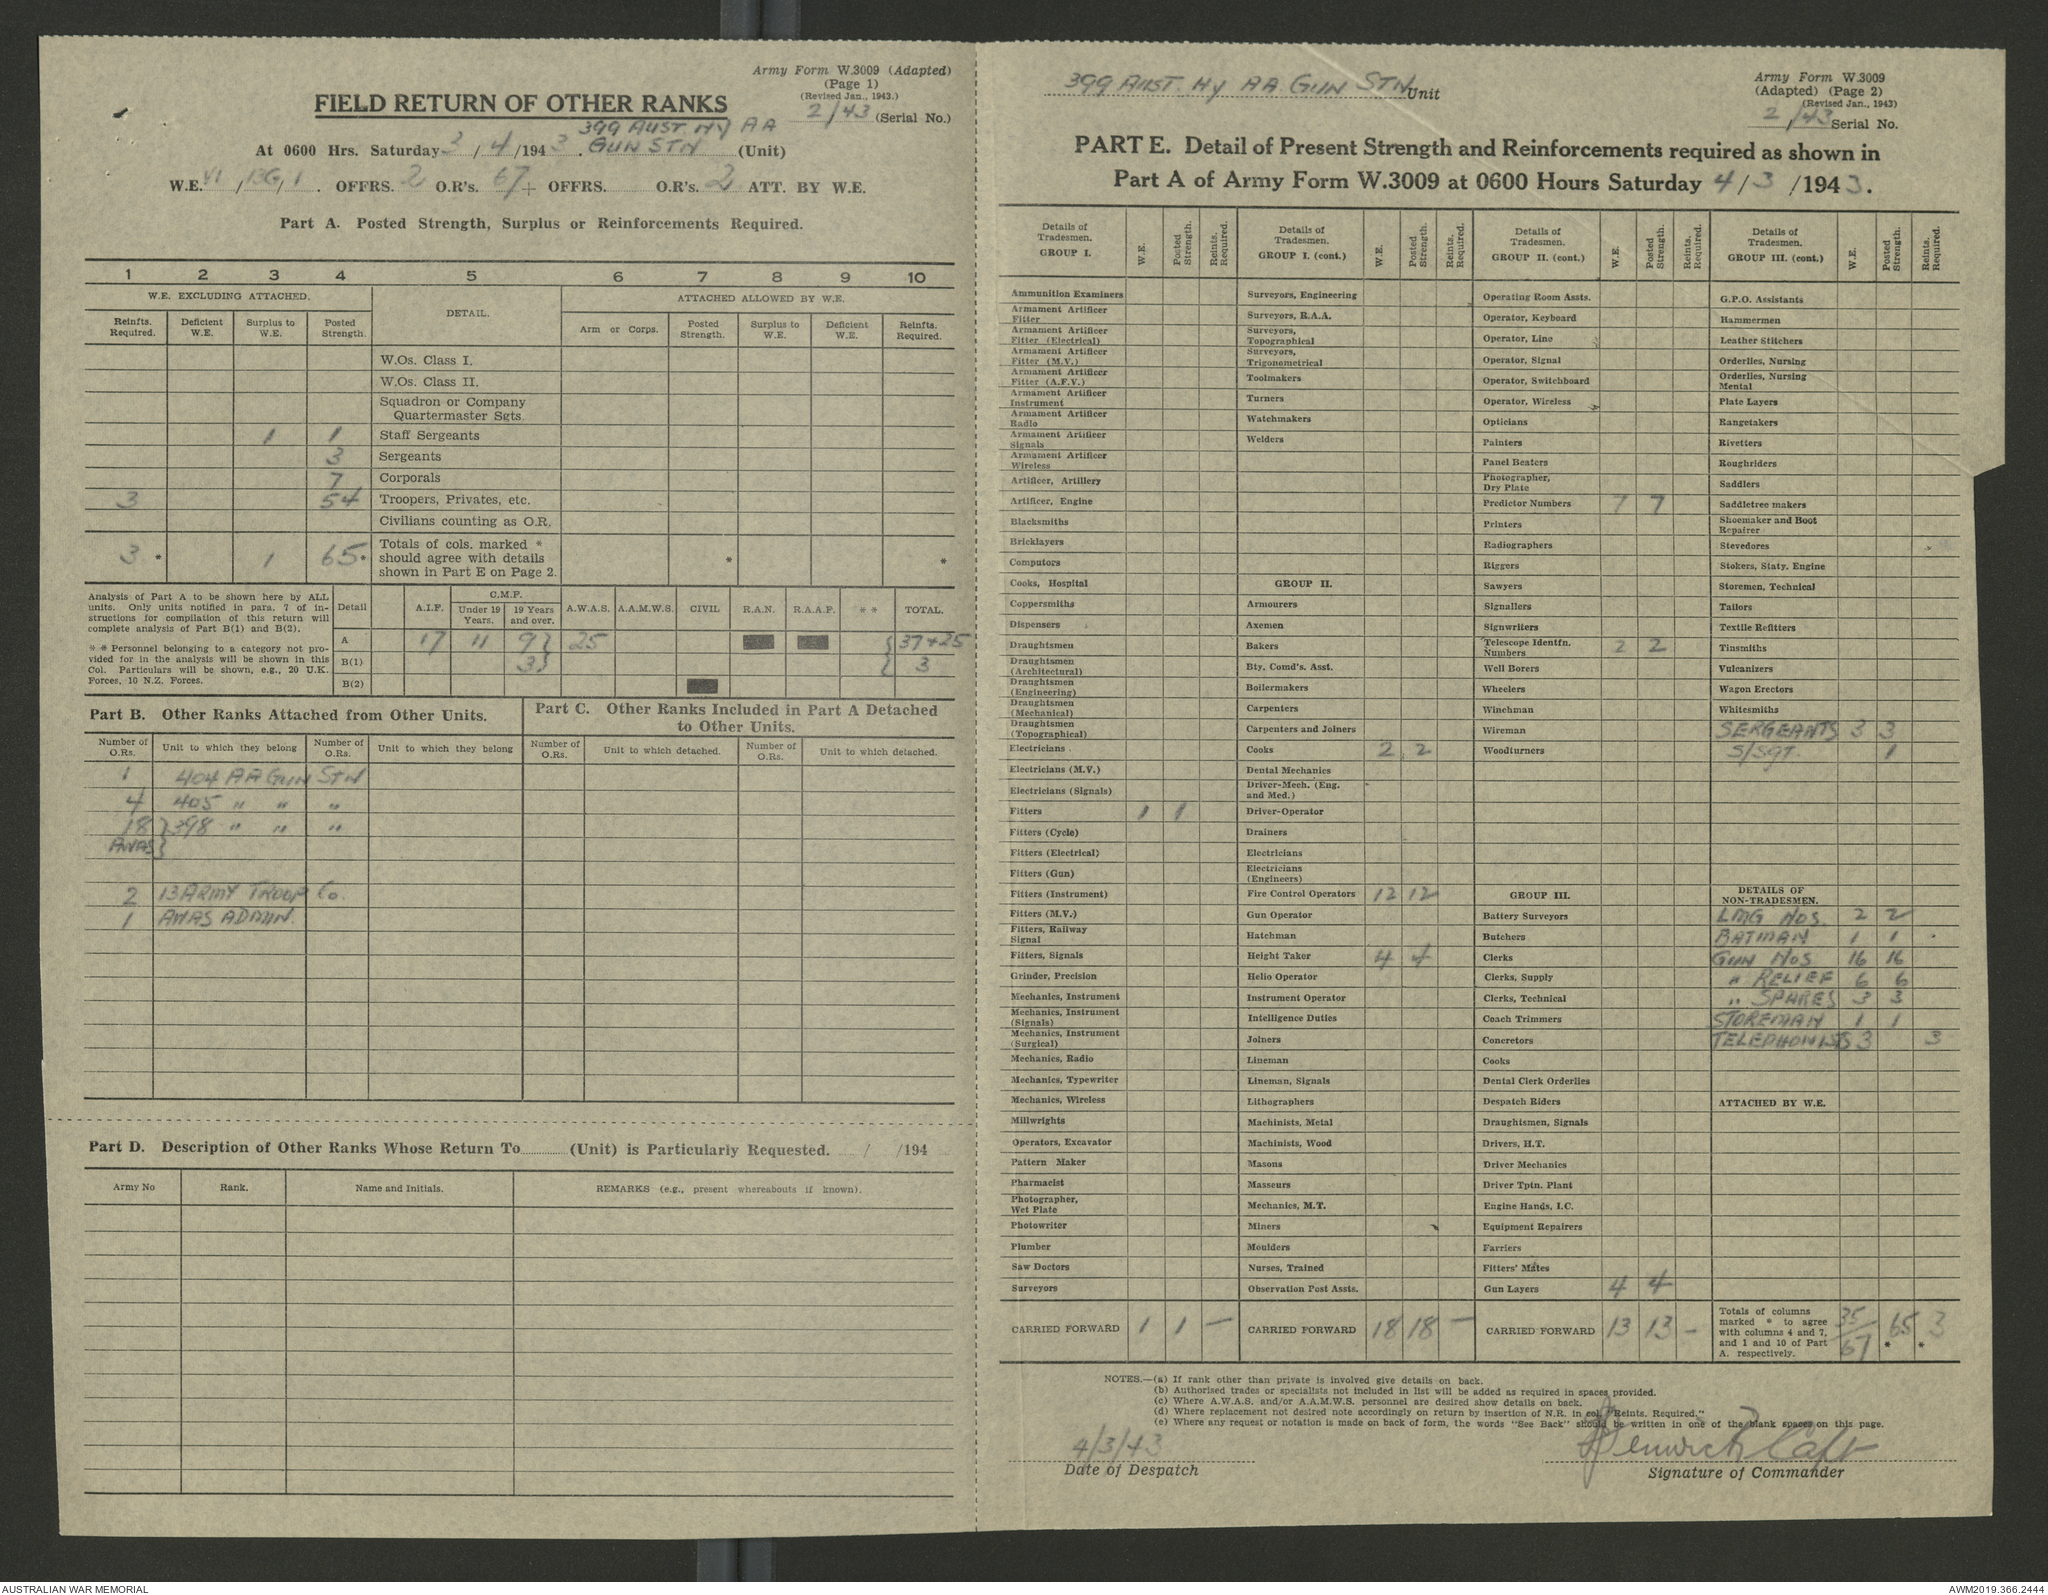 Army Form W.3009 (Adapted)
(Page 1)
(Revised Jan., 1943.)
2/43 (Serial No.)
FIELD RETURN OF OTHER RANKS
399 AUST. Hy AA
At 0600 Hrs. Saturday 3/4/1943. GUN STN (Unit)
W.E. VI/13G/1. OFFRS. 2 O.R's. 67 + OFFRS. O.R's. 2 ATT. BY W.E.
Part A. Posted Strength, Surplus or Reinforcements Required.
1 2 3 4 5 6 7 8 9 10
W.E. EXCLUDING ATTACHED. DETAIL. ATTACHED ALLOWED BY W.E.
Reinfts. Required. Deficient W.E. Surplus to W.E. Posted Strength. Arm or Corps. Posted Strength. Surplus to W.E. Deficient W.E. Reinfts. Required.
W.Os. Class I.
W.Os. Class II.
Squadron or Company
Quartermaster Sgts.
1 1 Staff Sergeants
3 Sergeants
7 Corporals
3 54 Troopers, Privates, etc.
Civilians counting as O.R.
3 * 1 65 * Totals of cols. marked * should agree with details shown in Part E on Page 2. * *
Analysis of Part A to be shown here by ALL
units. Only units notified in para. 7 of in-
structions for compilation of this return will
complete analysis of Part B(1) and B(2).
* * Personnel belonging to a category not pro-
vided for in the analysis will be shown in this
Col. Particulars will be shown, e.g., 20 U.K.
Forces, 10 N.Z. Forces.
Detail A.I.F. C.M.F. Under 19 Years. 19 Years and over. A.W.A.S. A.A.M.W.S. CIVIL R.A.N. R.A.A.F. * * TOTAL.
A 17 11 9 } 25 { 37+25
B(1) 3 } { 3
B(2)
Part B. Other Ranks Attached from Other Units.
Number of O.Rs. Unit to which they belong Number of O.Rs. Unit to which they belong
1 404 AA GUN STN
4 405 " " "
18 } 398 " " "
AWAS }
2 13 ARMY TROOP Co.
1 AWAS ADMIN.
Part C. Other Ranks Included in Part A Detached
to Other Units.
Number of O.Rs. Unit to which detached. Number of O.Rs. Unit to which detached.
Part D. Description of Other Ranks Whose Return To (Unit) is Particularly Requested. / /194
Army No Rank. Name and Initials. REMARKS (e.g., present whereabouts if known).
399 AUST. Hy AA GUN STN Unit
Army Form W.3009
(Adapted) (Page 2)
(Revised Jan., 1943)
2/43 Serial No.
PART E. Detail of Present Strength and Reinforcements required as shown in
Part A of Army Form W.3009 at 0600 Hours Saturday 4/3/1943.
Details of Tradesmen. GROUP I. W.E. Posted Strength. Reints. Required.
Ammunition Examiners
Armament Artificer Fitter
Armament Artificer Fitter (Electrical)
Armament Artificer Fitter (M.V.)
Armament Artificer Fitter (A.F.V.)
Armament Artificer Instrument
Armament Artificer Radio
Armament Artificer Signals
Armament Artificer Wireless
Artificer, Artillery
Artificer, Engine
Blacksmiths
Bricklayers
Computors
Cooks, Hospital
Coppersmiths
Dispensers
Draughtsmen
Draughtsmen (Architectural)
Draughtsmen (Engineering)
Draughtsmen (Mechanical)
Draughtsmen (Topographical)
Electricians
Electricians (M.V.)
Electricians (Signals)
Fitters 1 1
Fitters (Cycle)
Fitters (Electrical)
Fitters (Gun)
Fitters (Instrument)
Fitters (M.V.)
Fitters, Railway Signal
Fitters, Signals
Grinder, Precision
Mechanics, Instrument
Mechanics, Instrument (Signals)
Mechanics, Instrument (Surgical)
Mechanics, Radio
Mechanics, Typewriter
Mechanics, Wireless
Millwrights
Operators, Excavator
Pattern Maker
Pharmacist
Photographer, Wet Plate
Photowriter
Plumber
Saw Doctors
Surveyors
CARRIED FORWARD 1 1 —
Details of Tradesmen. GROUP I. (cont.) W.E. Posted Strength. Reints. Required.
Surveyors, Engineering
Surveyors, R.A.A.
Surveyors, Topographical
Surveyors, Trigonometrical
Toolmakers
Turners
Watchmakers
Welders
GROUP II.
Armourers
Axemen
Bakers
Bty. Comd's. Asst.
Boilermakers
Carpenters
Carpenters and Joiners
Cooks 2 2
Dental Mechanics
Driver-Mech. (Eng. and Med.)
Driver-Operator
Drainers
Electricians
Electricians (Engineers)
Fire Control Operators 12 12
Gun Operator
Hatchman
Height Taker 4 4
Helio Operator
Instrument Operator
Intelligence Duties
Joiners
Lineman
Lineman, Signals
Lithographers
Machinists, Metal
Machinists, Wood
Masons
Masseurs
Mechanics, M.T.
Miners
Moulders
Nurses, Trained
Observation Post Assts.
CARRIED FORWARD 18 18 —
Details of Tradesmen. GROUP II. (cont.) W.E. Posted Strength. Reints. Required.
Operating Room Assts.
Operator, Keyboard
Operator, Line
Operator, Signal
Operator, Switchboard
Operator, Wireless
Opticians
Painters
Panel Beaters
Photographer, Dry Plate
Predictor Numbers 7 7
Printers
Radiographers
Riggers
Sawyers
Signallers
Signwriters
Telescope Identfn. Numbers 2 2
Well Borers
Wheelers
Winchman
Wireman
Woodturners
GROUP III.
Battery Surveyors
Butchers
Clerks
Clerks, Supply
Clerks, Technical
Coach Trimmers
Concretors
Cooks
Dental Clerk Orderlies
Despatch Riders
Draughtsmen, Signals
Drivers, H.T.
Driver Mechanics
Driver Tptn. Plant
Engine Hands, I.C.
Equipment Repairers
Farriers
Fitters' Mates
Gun Layers 4 4
CARRIED FORWARD 13 13 —
Details of Tradesmen. GROUP III. (cont.) W.E. Posted Strength. Reints. Required.
G.P.O. Assistants
Hammermen
Leather Stitchers
Orderlies, Nursing
Orderlies, Nursing Mental
Plate Layers
Rangetakers
Rivetters
Roughriders
Saddlers
Saddletree makers
Shoemaker and Boot Repairer
Stevedores
Stokers, Staty. Engine
Storemen, Technical
Tailors
Textile Refitters
Tinsmiths
Vulcanizers
Wagon Erectors
Whitesmiths
SERGEANTS 3 3
S/SGT. 1
DETAILS OF NON-TRADESMEN.
LMG NOS. 2 2
BATMAN 1 1
GUN NOS 16 16
" RELIEF 6 6
" SPARES 3 3
STOREMAN 1 1
TELEPHONISTS 3 3
ATTACHED BY W.E.
Totals of columns marked * to agree with columns 4 and 7, and 1 and 10 of Part A. respectively. 35/67 65 * 3 *
NOTES.—(a) If rank other than private is involved give details on back.
(b) Authorised trades or specialists not included in list will be added as required in spaces provided.
(c) Where A.W.A.S. and/or A.A.M.W.S. personnel are desired show details on back.
(d) Where replacement not desired note accordingly on return by insertion of N.R. in col. "Reints. Required."
(e) Where any request or notation is made on back of form, the words "See Back" should be written in one of the blank spaces on this page.
4/3/43
Date of Despatch
Fenwick Capt
Signature of Commander
AUSTRALIAN WAR MEMORIAL
AWM2019.366.2444